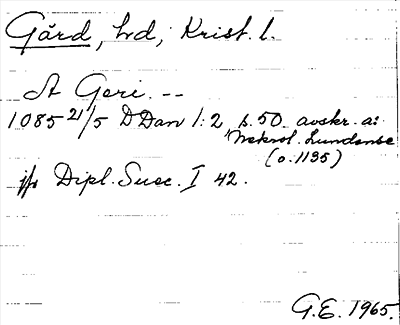 Gård, hd, Krist. l.
At Geri. --
1085 21/5 DDan 1:2 s. 50 avskr. a:
Nekrol. Lundense
(o. 1135)
jfr Dipl. Suec. I 42.
G.E. 1965.